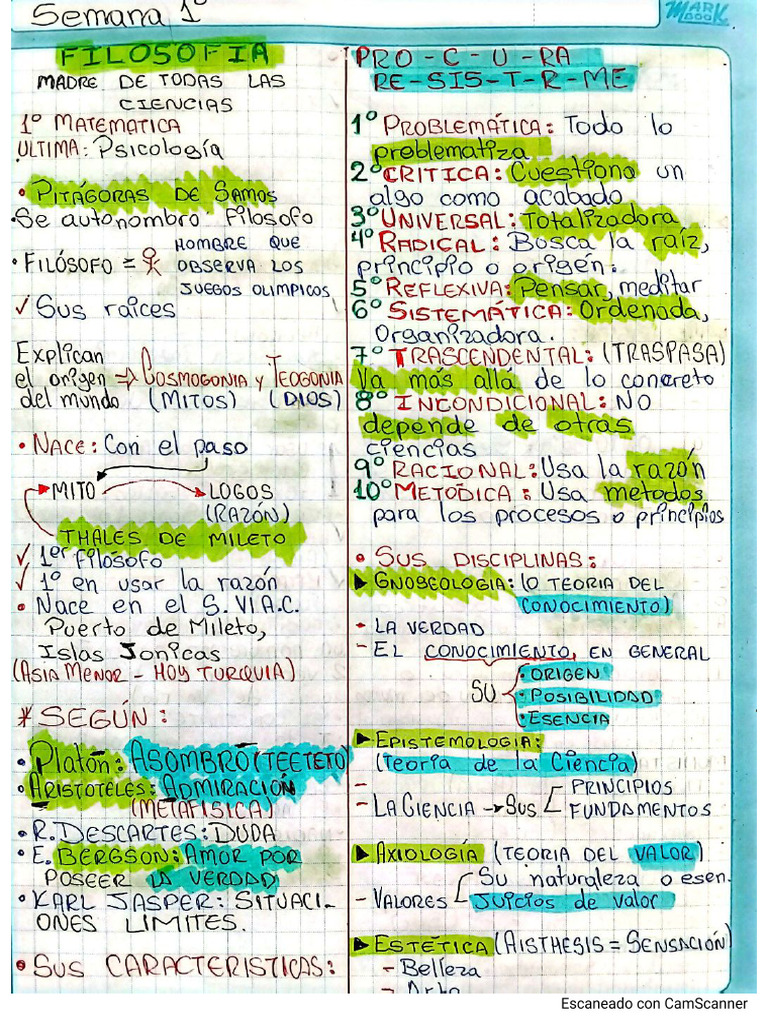 Semana 1°
MARK
BOOK
FILOSOFIA
MADRE DE TODAS LAS
CIENCIAS
1° MATEMATICA
ULTIMA: Psicología
• PITÁGORAS DE SAMOS
• Se autonombró filosofo
• FILÓSOFO = HOMBRE QUE
OBSERVA LOS
JUEGOS OLIMPICOS
✓ Sus raices
Explican
el origen ⇒ COSMOGONIA y TEOGONIA
del mundo (MITOS) (DIOS)
• NACE: Con el paso
MITO → LOGOS
(RAZÓN)
THALES DE MILETO
✓ 1er filósofo
✓ 1° en usar la razón
• Nace en el S. VI A.C.
Puerto de Mileto,
Islas Jonicas
(ASIA MENOR - HOY TURQUIA)
* SEGÚN:
• Platón: ASOMBRO (TEETETO)
• ARISTOTELES: ADMIRACIÓN
(METAFISICA)
• R. DESCARTES: DUDA
• E. BERGSON: AMOR POR
POSEER LA VERDAD
• KARL JASPER: SITUACI-
ONES LIMITES.
• SUS CARACTERISTICAS:
PRO - C - U - RA
RE - SIS - T - R - ME
1° PROBLEMÁTICA: Todo lo
problematiza
2° CRITICA: Cuestiona un
algo como acabado
3° UNIVERSAL: Totalizadora
4° RADICAL: Busca la raíz,
principio o origen.
5° REFLEXIVA: Pensar, meditar
6° SISTEMÁTICA: Ordenada,
Organizadora.
7° TRASCENDENTAL: (TRASPASA)
Va más allá de lo concreto
8° INCONDICIONAL: NO
depende de otras
ciencias
9° RACIONAL: Usa la razón
10° METODICA: Usa metodos
para los procesos o principios
• SUS DISCIPLINAS:
▶ GNOSEOLOGIA: (O TEORIA DEL
CONOCIMIENTO)
- LA VERDAD
- EL CONOCIMIENTO, EN GENERAL
SU • ORIGEN
• POSIBILIDAD
• ESENCIA
▶ EPISTEMOLOGIA:
(Teoría de la Ciencia)
- LA CIENCIA → SUS PRINCIPIOS
FUNDAMENTOS
▶ AXIOLOGÍA (TEORIA DEL VALOR)
- VALORES Su naturaleza o esen.
Juicios de valor
▶ ESTÉTICA (AISTHESIS = SENSACIÓN)
- Belleza
- Arte
Escaneado con CamScanner